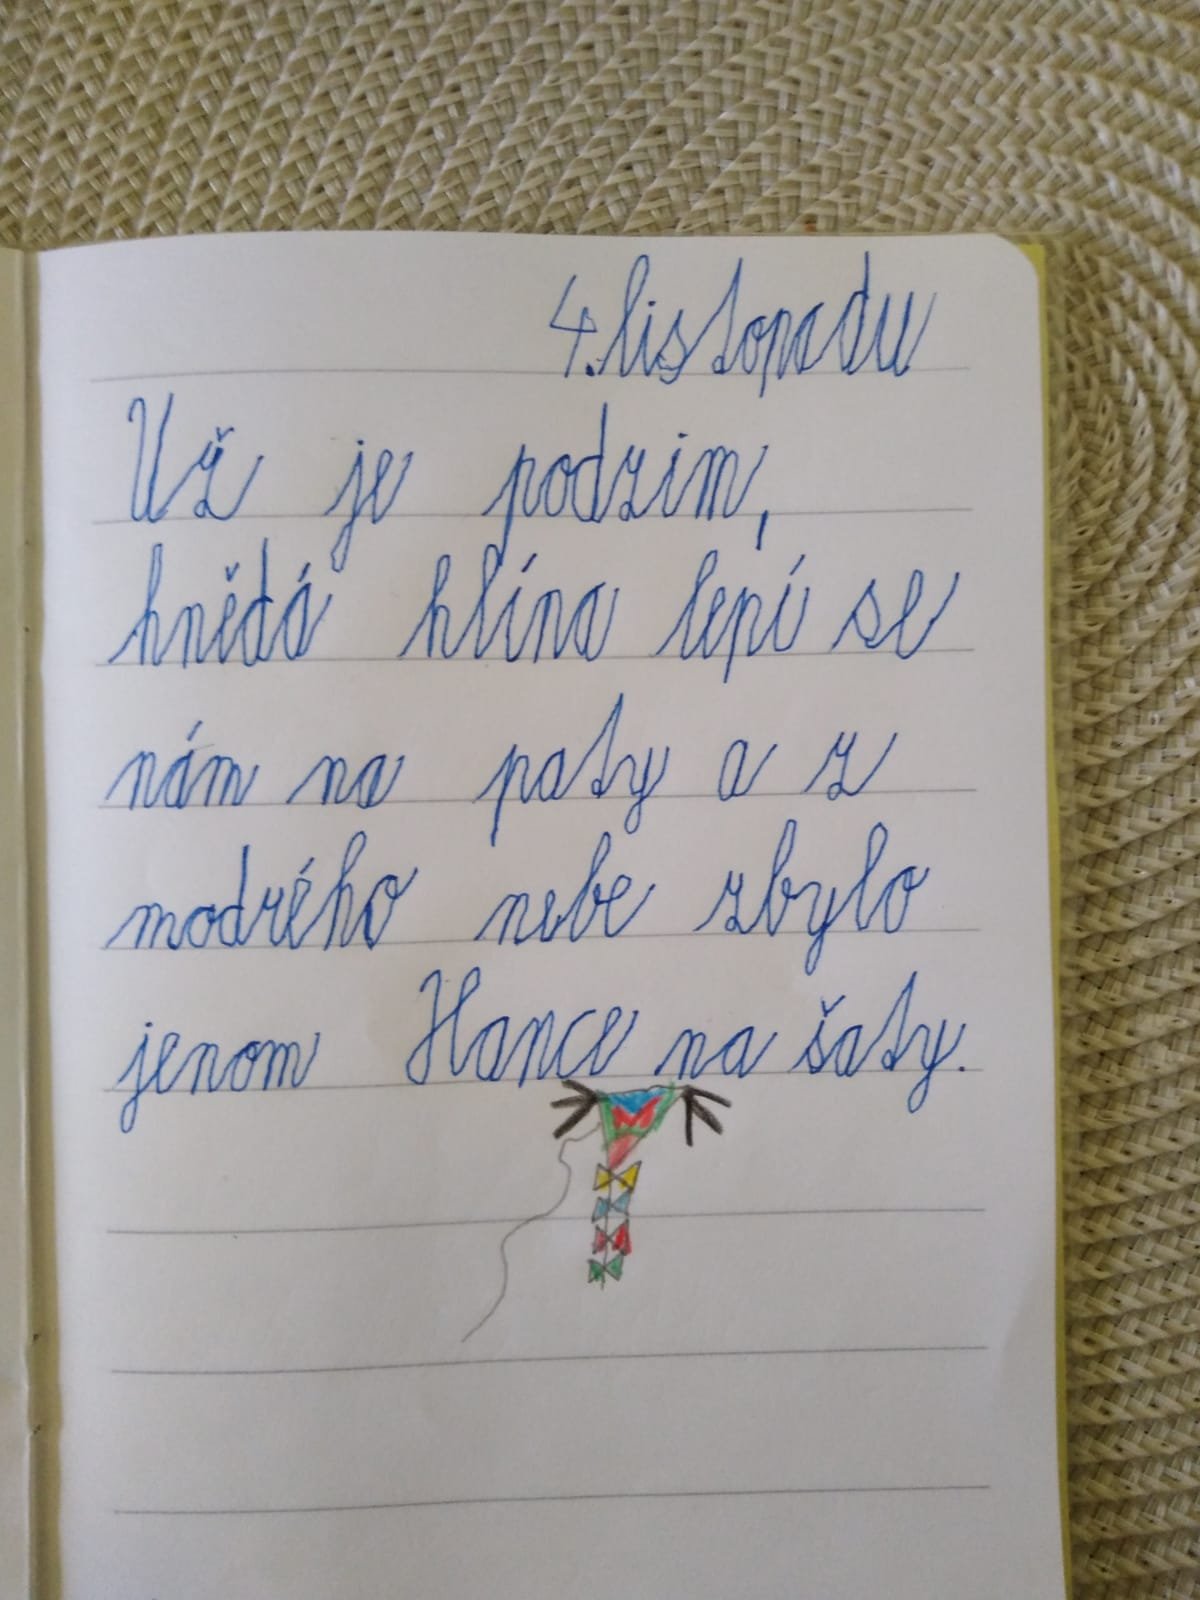 4. listopadu
Už je podzim,
hnědá hlína lepí se
nám na paty a z
modrého nebe zbylo
jenom Hance na šaty.